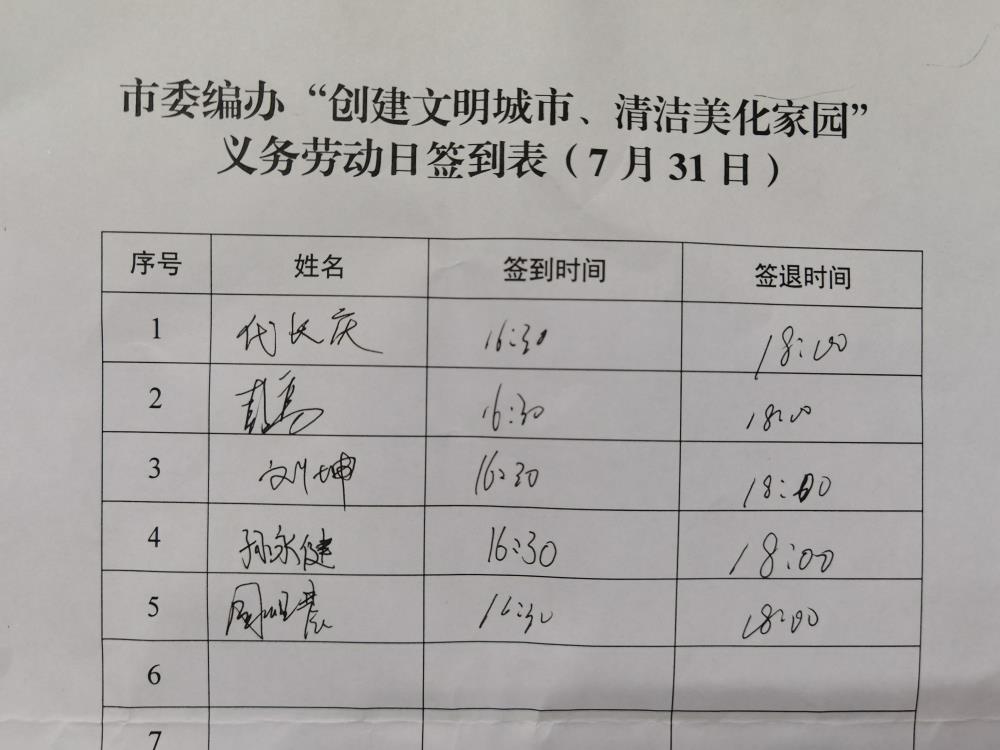 市委编办“创建文明城市、清洁美化家园”
义务劳动日签到表（7月31日）
序号 姓名 签到时间 签退时间
1 代长庆 16:30 18:00
2 16:30 18:00
3 刘坤 16:30 18:00
4 孙永健 16:30 18:00
5 16:30 18:00
6
7